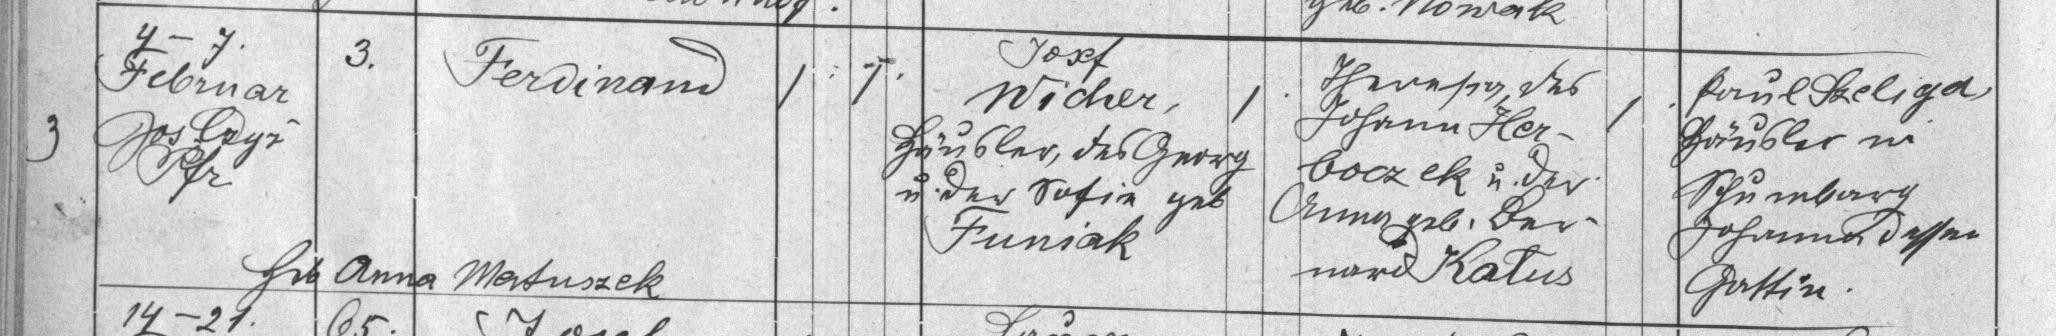 geb. Nowak
4 – 7.
Februar
3
Pfr
3.
Ferdinand
Josef
Wicher,
Häusler, des Georg
u. der Sofie geb
Funiak
Theresia, des
Johann Her-
boczek u. der
Anna geb. Ber-
nard Katus
Paul Szeliga,
Häusler in
Schumbarg
Johanna dessen
Gattin.
Heb Anna Matuszek
14 – 21.
65.
Josef